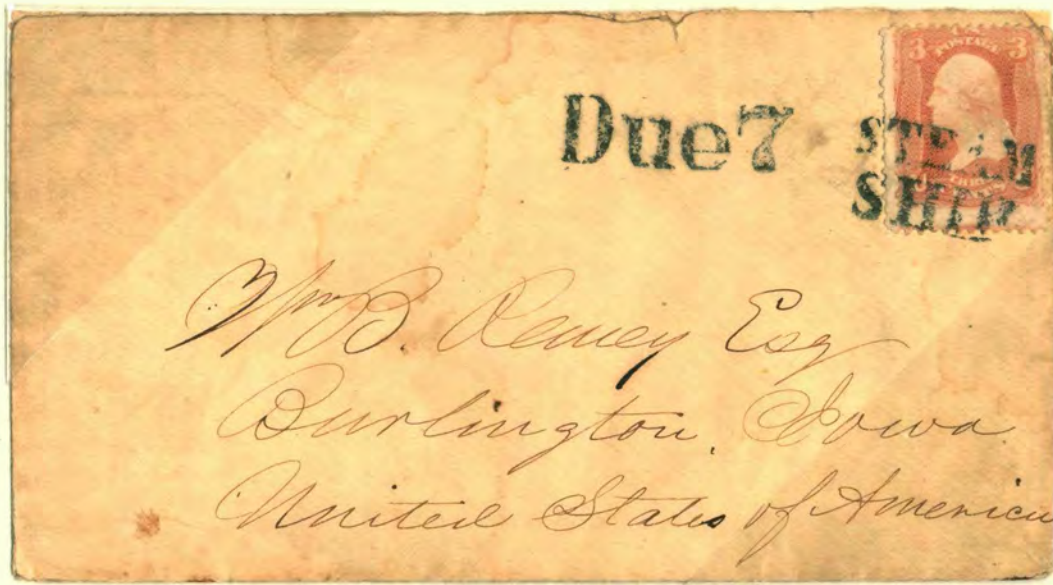 U.S.
3 POSTAGE 3
Due 7
STEAM
SHIP
Wm B. Remey Esq
Burlington, Iowa
United States of America